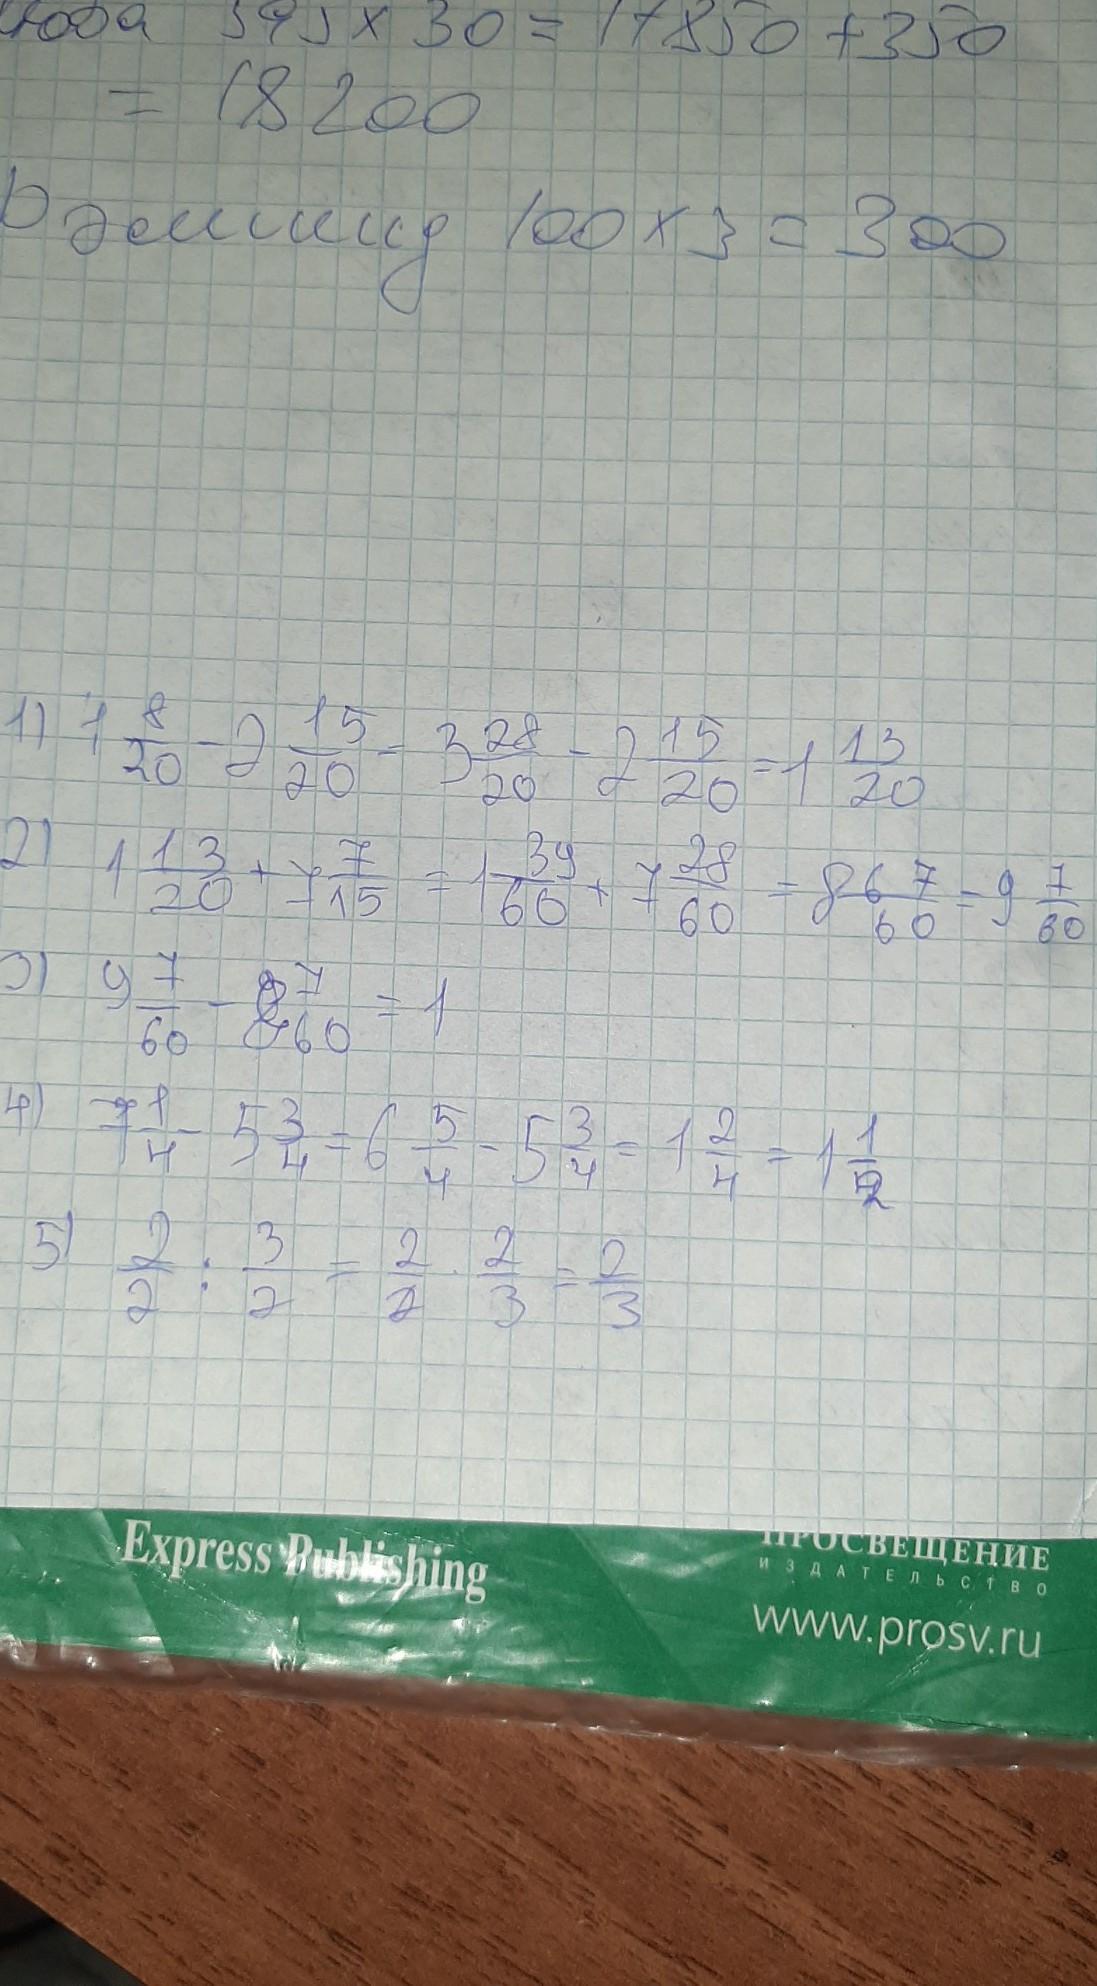 595 x 30 = 17850 + 350
= 18200
100 x 3 = 300
1) 4 8/20 - 2 15/20 = 3 28/20 - 2 15/20 = 1 13/20
2) 1 13/20 + 7 7/15 = 1 39/60 + 7 28/60 = 8 67/60 = 9 7/60
3) 9 7/60 - 8 7/60 = 1
4) 7 1/4 - 5 3/4 = 6 5/4 - 5 3/4 = 1 2/4 = 1 1/2
5) 2/2 : 3/2 = 2/2 · 2/3 = 2/3
Express Publishing
ПРОСВЕЩЕНИЕ
ИЗДАТЕЛЬСТВО
www.prosv.ru